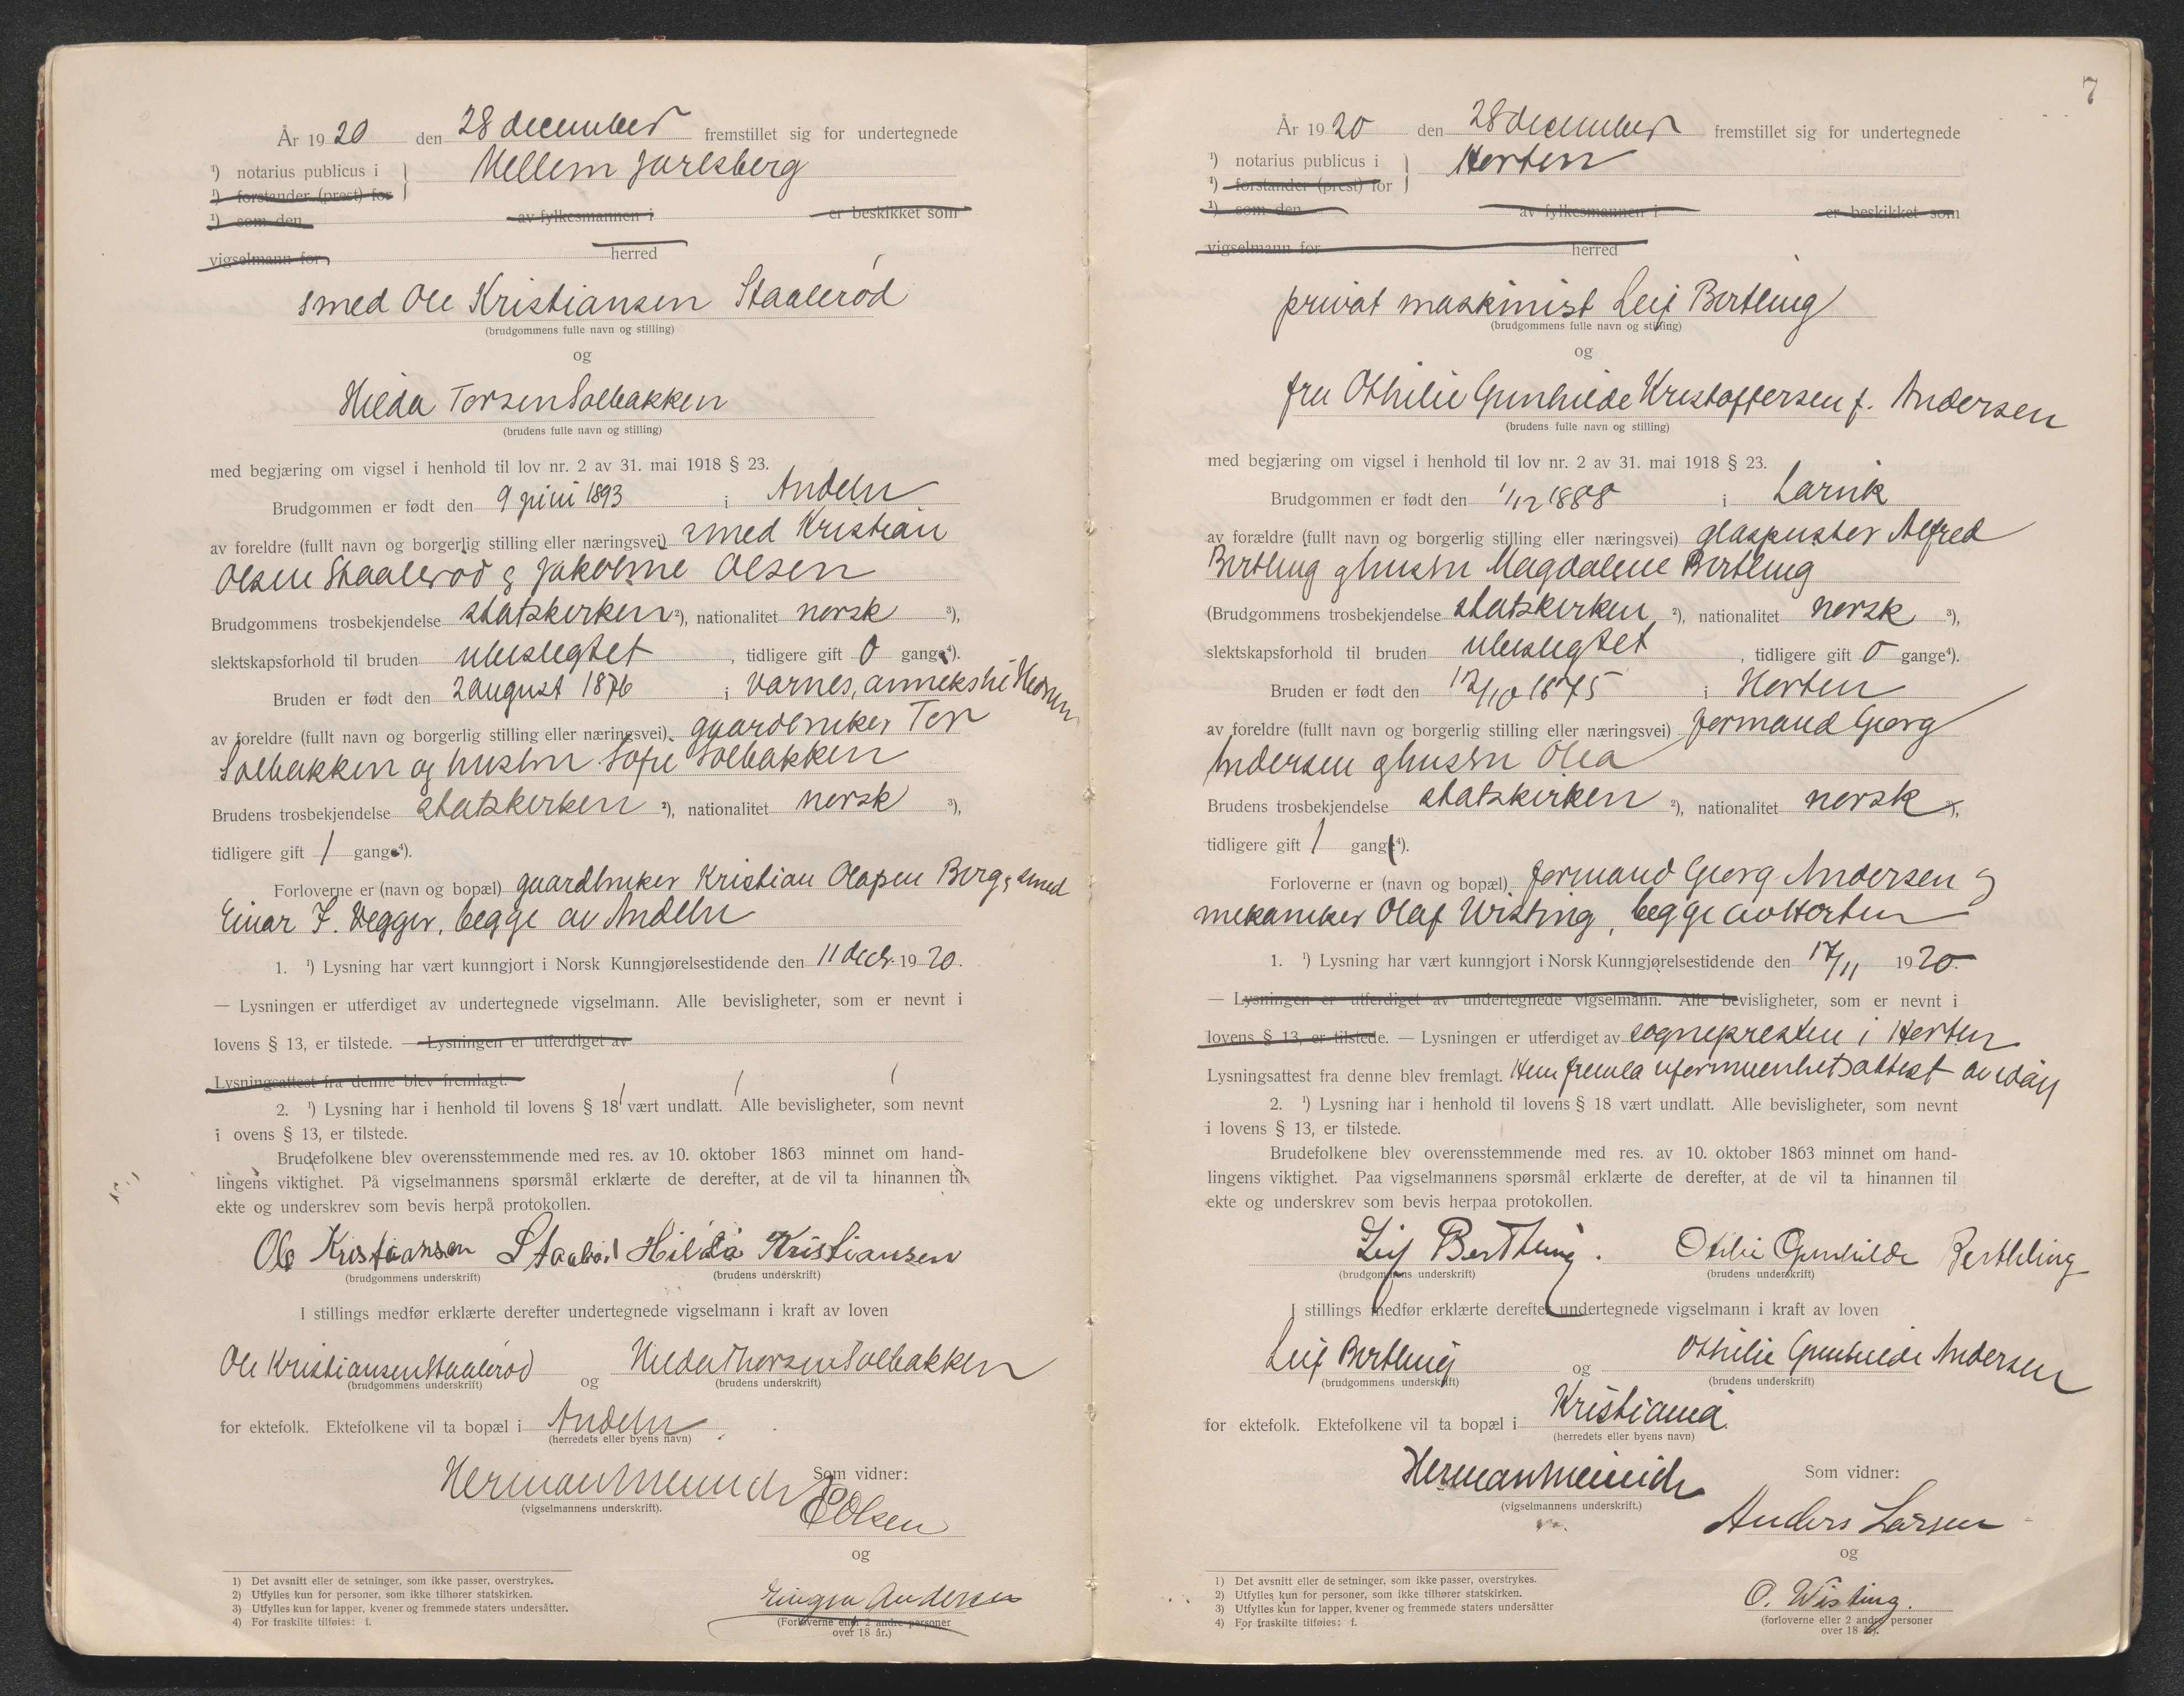 År 1920 den 28 december fremstillet sig for undertegnede
¹) notarius publicus i } Mellem Jarlsberg
¹) forstander (prest) for
¹) som den av fylkesmannen i er beskikket som
vigselmann for herred
smed Ole Kristiansen Staalerød
(brudgommens fulle navn og stilling)
og
Hilda Torsen Solbakken
(brudens fulle navn og stilling)
med begjæring om vigsel i henhold til lov nr. 2 av 31. mai 1918 § 23.
Brudgommen er født den 9 juni 1893 i Andebu
av foreldre (fullt navn og borgerlig stilling eller næringsvei) smed Kristian
Olsen Staalerød & Jakobine Olsen
Brudgommens trosbekjendelse statskirken ²), nationalitet norsk ³),
slektskapsforhold til bruden ubeslegtet, tidligere gift 0 gange⁴).
Bruden er født den 2 august 1876 i Varnes, anneks til Hedrum
av foreldre (fullt navn og borgerlig stilling eller næringsvei) gaardbruker Tor
Solbakken og hustru Sofie Solbakken
Brudens trosbekjendelse statskirken ²), nationalitet norsk ³),
tidligere gift 1 gange⁴).
Forloverne er (navn og bopæl) gaardbruker Kristian Olapen Berg & smed
Einar F. Vegger, begge av Andebu
1. ¹) Lysning har vært kunngjort i Norsk Kunngjørelsestidende den 11 decb. 1920.
— Lysningen er utferdiget av undertegnede vigselmann. Alle bevisligheter, som er nevnt i
lovens § 13, er tilstede. — Lysningen er utferdiget av
Lysningsattest fra denne blev fremlagt.
2. ¹) Lysning har i henhold til lovens § 18 vært undlatt. Alle bevisligheter, som nevnt
i ovens § 13, er tilstede.
Brudefolkene blev overensstemmende med res. av 10. oktober 1863 minnet om hand-
lingens viktighet. På vigselmannens spørsmål erklærte de derefter, at de vil ta hinannen til
ekte og underskrev som bevis herpå protokollen.
Ole Kristiansen Staalrød Hilda Kristiansen
(brudgommens underskrift) (brudens underskrift)
I stillings medfør erklærte derefter undertegnede vigselmann i kraft av loven
Ole Kristiansen Staalerød og Hilda Thorsen Solbakken
(brudgommens underskrift) (brudens underskrift)
for ektefolk. Ektefolkene vil ta bopæl i Andebu
(herredets eller byens navn)
Herman Meinich Som vidner:
(vigselmannens underskrift).
E Olsen
og
Andersen
(Forloverne eller 2 andre personer
over 18 år.)
1) Det avsnitt eller de setninger, som ikke passer, overstrykes.
2) Utfylles kun for personer, som ikke tilhører statskirken.
3) Utfylles kun for lapper, kvener og fremmede staters undersåtter.
4) For fraskilte tilføies: f.
7
År 1920 den 28 december fremstillet sig for undertegnede
¹) notarius publicus i } Horten
¹) forstander (prest) for
¹) som den av fylkesmannen i er beskikket som
vigselmann for herred
privat maskinist Leif Bertling
(brudgommens fulle navn og stilling)
og
fru Othilie Gunhilde Kristoffersen f. Andersen
(brudens fulle navn og stilling)
med begjæring om vigsel i henhold til lov nr. 2 av 31. mai 1918 § 23.
Brudgommen er født den 1/12 1888 i Larvik
av forældre (fullt navn og borgerlig stilling eller næringsvei) glaspuster Alfred
Bertling & hustru Magdalene Bertling
(Brudgommens trosbekjendelse statskirken ²), nationalitet norsk ³),
slektskapsforhold til bruden ubeslegtet, tidligere gift 0 gange⁴).
Bruden er født den 12/10 1875 i Horten
av foreldre (fullt navn og borgerlig stilling eller næringsvei) formand Georg
Andersen & hustru Olea
Brudens trosbekjendelse statskirken ²), nationalitet norsk ³),
tidligere gift 1 gange⁴).
Forloverne er (navn og bopæl) formand Georg Andersen &
mekaniker Olaf Wisting, begge av Horten
1. ¹) Lysning har vært kunngjort i Norsk Kunngjørelsestidende den 17/11 1920.
— Lysningen er utferdiget av undertegnede vigselmann. Alle bevisligheter, som er nevnt i
lovens § 13, er tilstede. — Lysningen er utferdiget av sognepresten i Horten
Lysningsattest fra denne blev fremlagt. Hun fremla uformuenhetsattest av idag
2. ¹) Lysning har i henhold til lovens § 18 vært undlatt. Alle bevisligheter, som nevnt
i lovens § 13, er tilstede.
Brudefolkene blev overensstemmende med res. av 10. oktober 1863 minnet om hand-
lingens viktighet. Paa vigselmannens spørsmål erklærte de derefter, at de vil ta hinannen til
ekte og underskrev som bevis herpaa protokollen.
Leif Berthling. Otilie Gunhilde Berthling
(brudgommens underskrift) (brudens underskrift)
I stillings medfør erklærte derefter undertegnede vigselmann i kraft av loven
Leif Bertling og Othilie Gunhilde Andersen
(brudgommens underskrift) (brudens underskrift)
for ektefolk. Ektefolkene vil ta bopæl i Kristiania
(herredets eller byens navn)
Herman Meinich Som vidner:
(vigselmannens underskrift.)
Anders Larsen
og
O. Wisting.
(forloverne eller 2 andre personer
over 18 år).
1) Det avsnitt eller de setninger, som ikke passer, overstrykes.
2) Utfylles kun for personer, som ikke tilhører statskirken.
3) Utfylles kun for lapper, kvener og fremmede staters undersåtter
4) For fraskilte tilføies: f.